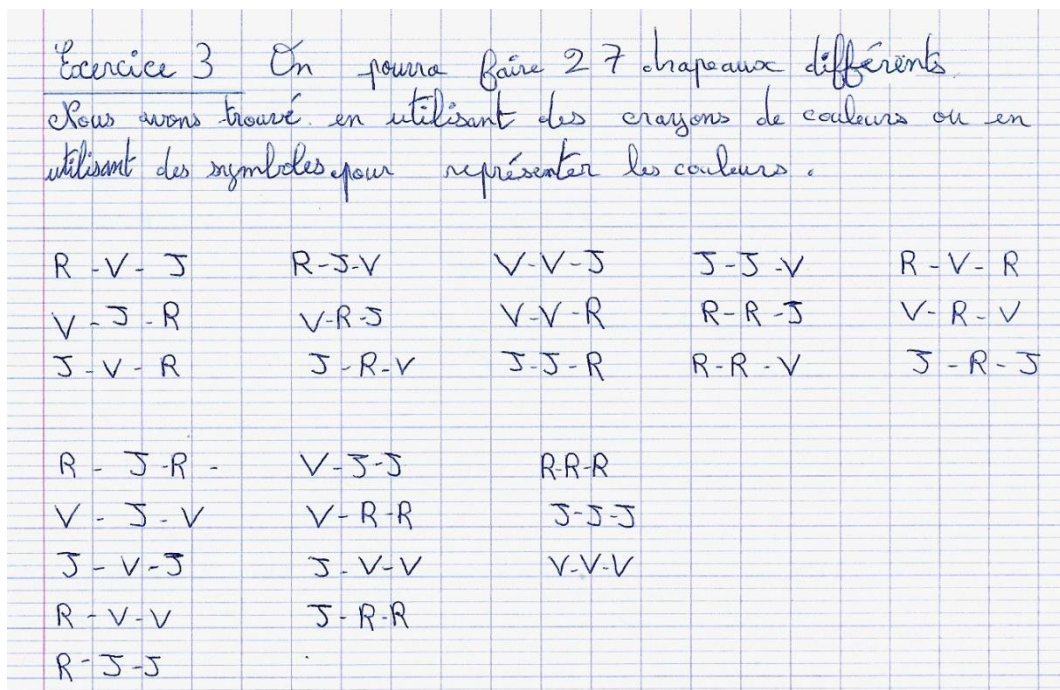 Exercice 3 On pourra faire 27 drapeaux différents.
Nous avons trouvé en utilisant des crayons de couleurs ou en
utilisant des symboles pour représenter les couleurs.
R - V - J R - J - V V - V - J J - J - V R - V - R
V - J - R V - R - J V - V - R R - R - J V - R - V
J - V - R J - R - V J - J - R R - R - V J - R - J
R - J - R - V - J - J R - R - R
V - J - V V - R - R J - J - J
J - V - J J - V - V V - V - V
R - V - V J - R - R
R - J - J